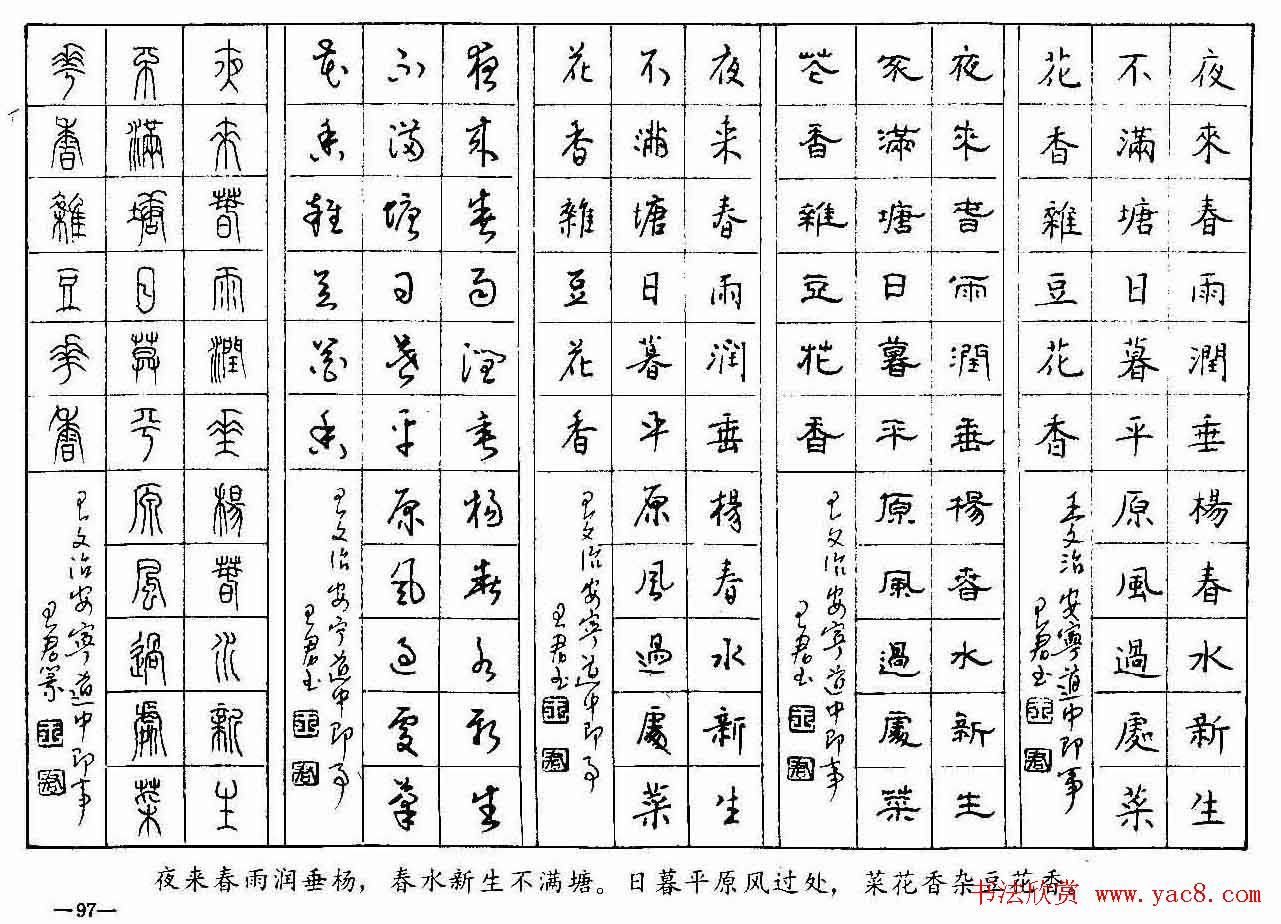 夜來春雨潤垂楊春水新生
不滿塘日暮平原風過處菜
花香雜豆花香
王文治安寧道中即事
王君書
夜來春雨潤垂楊春水新生
不滿塘日暮平原風過處菜
花香雜豆花香
王文治安寧道中即事
王君書
夜来春雨润垂楊春水新生
不滿塘日暮平原風過處菜
花香雜豆花香
王文治安寧道中即事
王君書
夜來春雨潤垂楊春水新生
不滿塘日暮平原風過處菜
花香雜豆花香
王文治安寧道中即事
王君書
夜來春雨潤垂楊春水新生
不滿塘日暮平原風過處菜
華香雜豆華香
王文治安寧道中即事
王君篆
夜来春雨润垂杨，春水新生不满塘。日暮平原风过处，菜花香杂豆花香。
书法欣赏 www.yac8.com
—97—